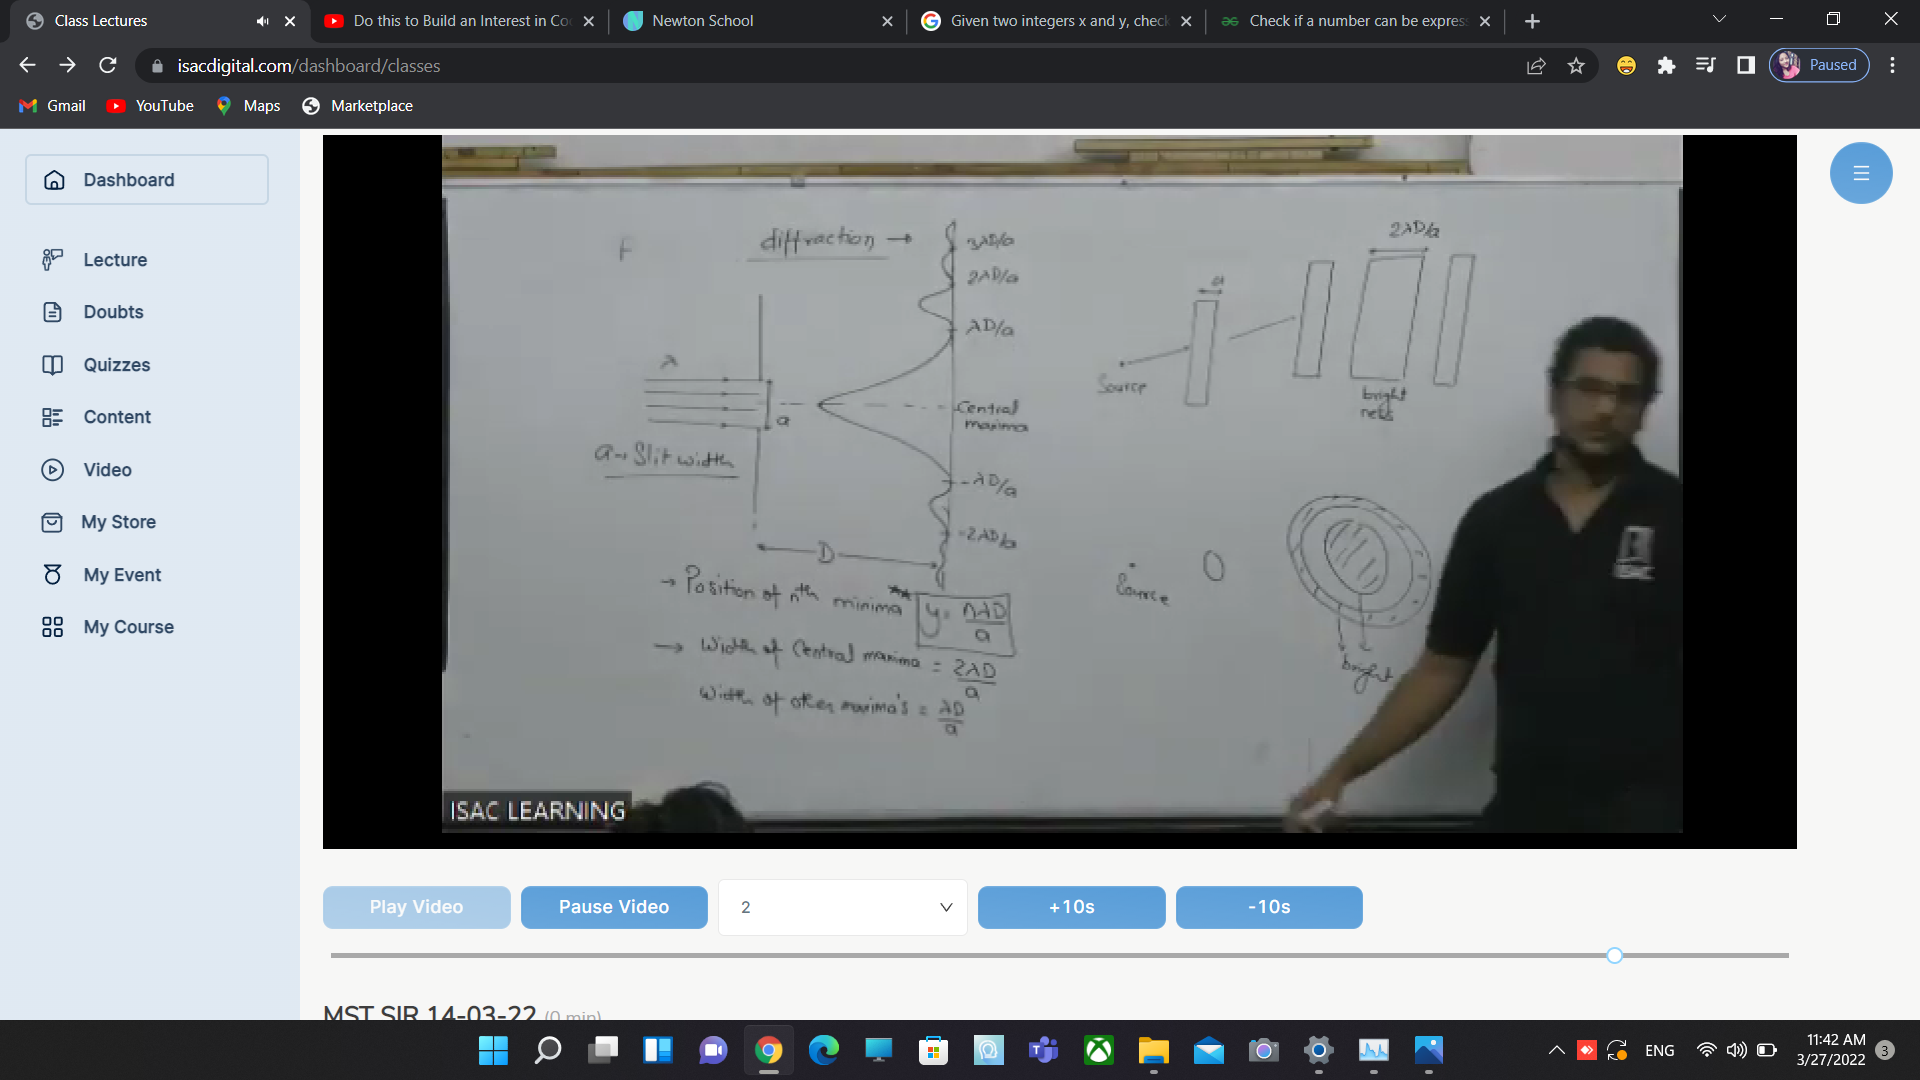 Class Lectures
Do this to Build an Interest in Co
Newton School
Given two integers x and y, check
Check if a number can be expres
isacdigital.com/dashboard/classes
Paused
Gmail
YouTube
Maps
Marketplace
Dashboard
Lecture
Doubts
Quizzes
Content
Video
My Store
My Event
My Course
F
diffraction →
3λD/a
2λD/a
λD/a
λ
a
Central
maxima
a → Slit width
-λD/a
-2λD/a
D
→ Position of nth minima ** y = nλD/a
→ Width of Central maxima = 2λD/a
Width of other maxima's = λD/a
2λD/a
a
Source
bright
ness
Source
bright
ISAC
ISAC LEARNING
Play Video
Pause Video
2
+10s
-10s
MST SIR 14-03-22 (0 min)
ENG
11:42 AM
3/27/2022
3